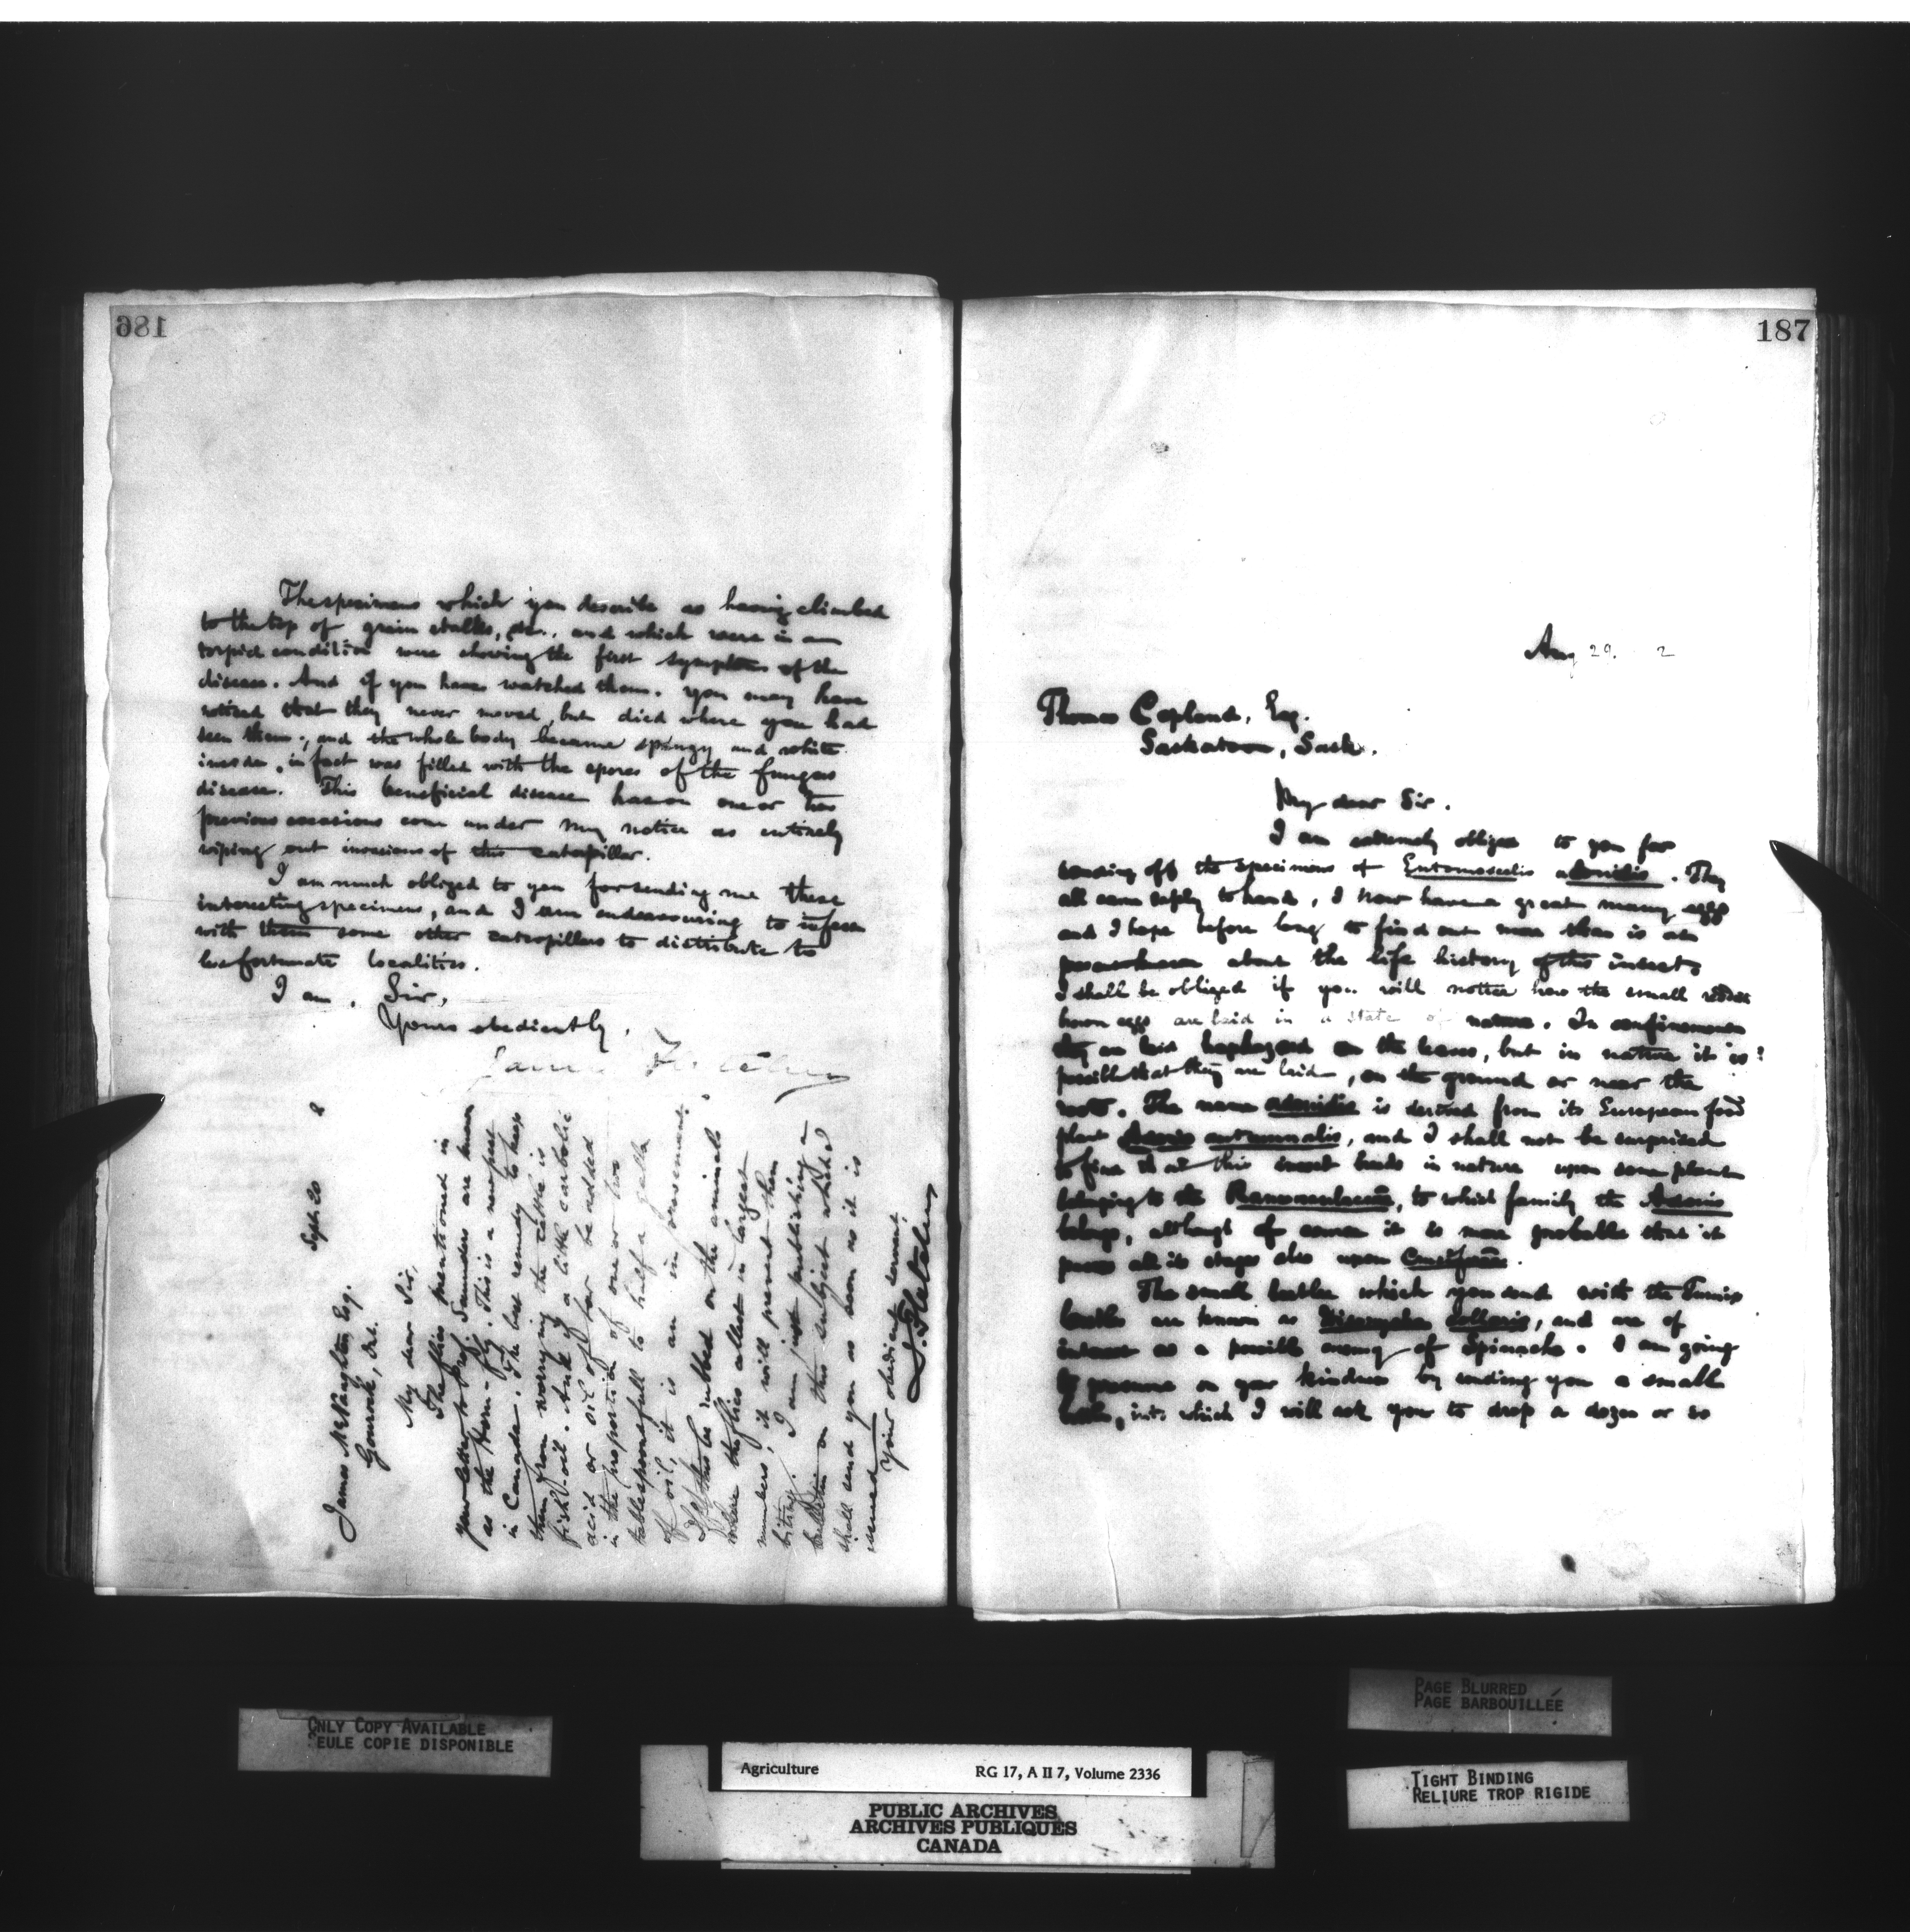 186
The specimens which you describe as having climbed
to the top of grain stalks, &c., and which were in a
torpid condition were showing the first symptoms of the
disease. And if you have watched them, you may have
noticed that they never moved, but died where you had
seen them; and the whole body became spongy and white
inside, in fact was filled with the spores of the fungus
disease. This beneficial disease has on one or two
previous occasions come under my notice as entirely
wiping out invasions of this caterpillar.
I am much obliged to you for sending me these
interesting specimens, and I am endeavouring to infest
with them some other caterpillars to distribute to
less fortunate localities.
I am, Sir,
Yours obediently,
James Fletcher
Sept. 20
James McNaughton, Esq.
Gourock, Ont.
My dear Sir,
The flies mentioned in
your letter to Prof. Saunders are known
as the Horn-fly. This is a new pest
in Canada. The best remedy to keep
them from worrying the cattle is
fish-oil. And if a little carbolic
acid or oil of tar be added
in the proportion of one or two
tablespoonsfull to half a gallon
of oil, it is an improvement.
If this be rubbed on the animals
where the flies collect in largest
numbers, it will prevent them
biting. I am just publishing a
bulletin on this subject which I
shall send you as soon as it is
issued
Your obedient servant,
J. Fletcher
187
Aug 29. 2
Thomas Copland, Esq.
Saskatoon, Sask.
My dear Sir.
I am extremely obliged to you for
sending off the specimens of Entomoscelis adonidis. They
all came safely to hand, I now have a great many eggs
and I hope before long to find out more than is at
present known about the life history of this insect.
I shall be obliged if you will notice how the small reddish
brown eggs are laid in a state of nature. In confinement
they are laid haphazard on the leaves, but in nature it is
possible that they are laid, on the ground or near the
roots. The name adonidis is derived from its European food
plant Adonis autumnalis, and I shall not be surprised
to find that this insect breeds in nature upon some plant
belonging to the Ranunculaceæ, to which family the Adonis
belongs, although of course it is more probable that it
passes all its stages also upon Cruciferæ.
The small beetles which you send with the Turnip
beetles are known as Disonycha collaris, and are of
interest as a possible enemy of Spinach. I am going
to presume on your kindness by sending you a small
bottle, into which I will ask you to drop a dozen or so
ONLY COPY AVAILABLE
SEULE COPIE DISPONIBLE
PAGE BLURRED
PAGE BARBOUILLÉE
TIGHT BINDING
RELIURE TROP RIGIDE
Agriculture RG 17, A II 7, Volume 2336
PUBLIC ARCHIVES
ARCHIVES PUBLIQUES
CANADA